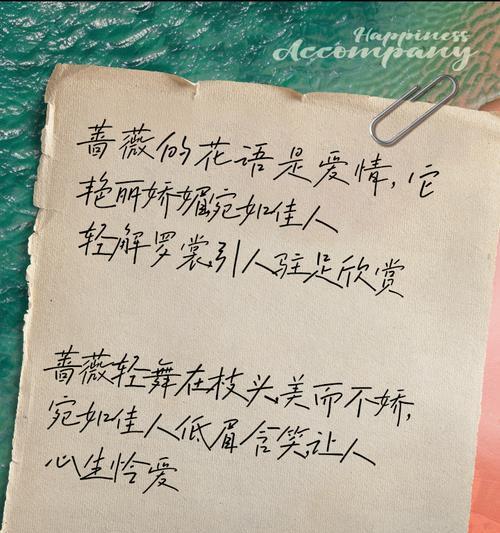 Happiness
Accompany
蔷薇的花语是爱情，它
艳丽娇媚宛如佳人
轻解罗裳引人驻足欣赏
蔷薇轻舞在枝头，美而不娇，
宛如佳人低眉含笑，让人
心生怜爱